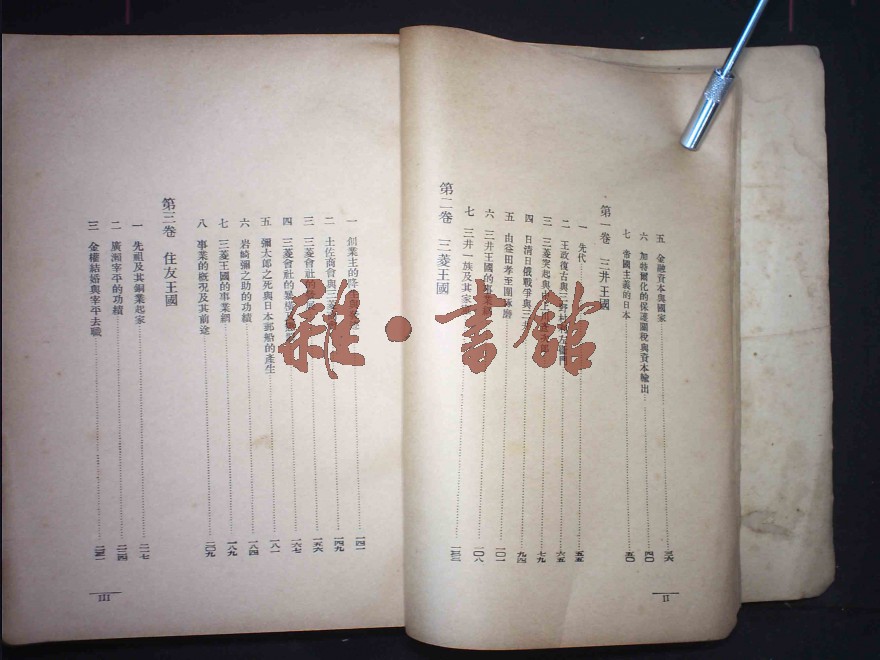 五 金融資本與國家 三六
六 加特爾化的保護關稅與資本輸出 四〇
七 帝國主義的日本 五〇
第一卷 三井王國
一 先代 五五
二 王政復古與三野村利左衞門 六五
三 三菱突起與 七九
四 日清日俄戰爭與三 九四
五 由益田孝至團琢磨 一〇一
六 三井王國的事業網 一〇八
七 三井一族及其家
第二卷 三菱王國
II
一 創業主的 一四一
二 土佐商會與三菱 一四九
三 三菱會社的 一五六
四 三菱會社的 一六七
五 彌太郎之死與日本郵船的產生 一八一
六 岩崎彌之助的功績 一八四
七 三菱王國的事業網 一八九
八 事業的概况及其前途 二〇九
第三卷 住友王國
一 先祖及其銅業起家 二一七
二 廣洲宰平的功績 二二四
三 金權結婚與宰平去職
III
雜·書館